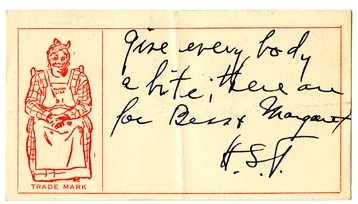 Give every body
a bite; there are
for Bess & Margaret
H.S.T.
TRADE MARK